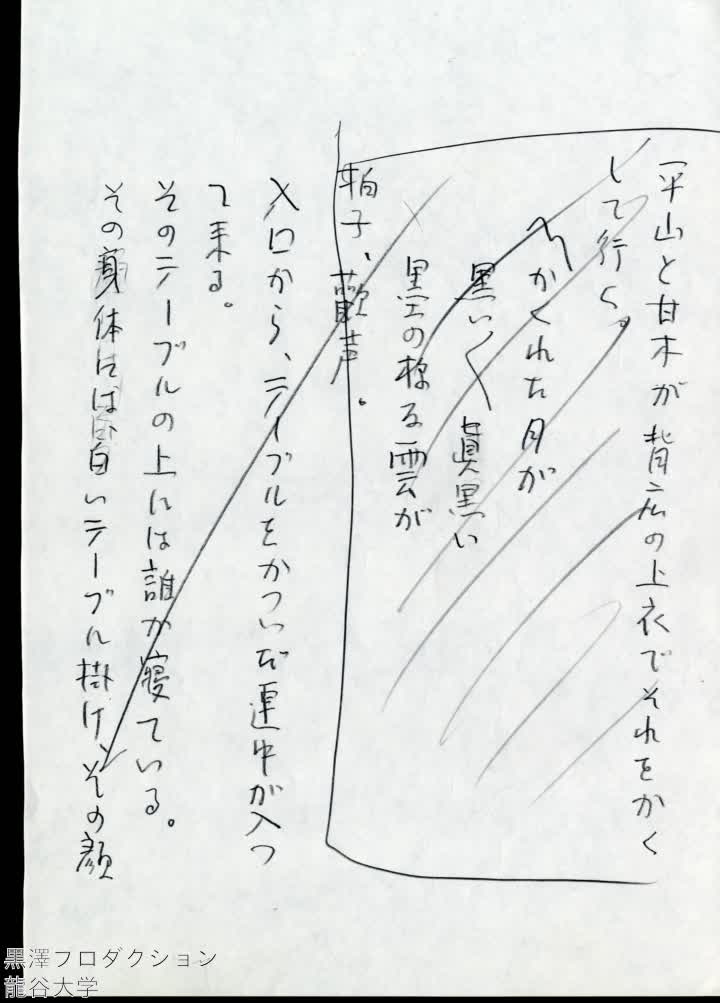 平山と甘木が背広の上衣でそれをかく
して行く。
へかくれた月が
黒い〱真黒い
墨の様な雲が
拍子、歓声。
入口から、テイブルをかついだ連中が入つ
て来る。
そのテーブルの上には誰か寝ている。
その身体には、白いテーブル掛け、その顔
黒澤プロダクション
龍谷大学